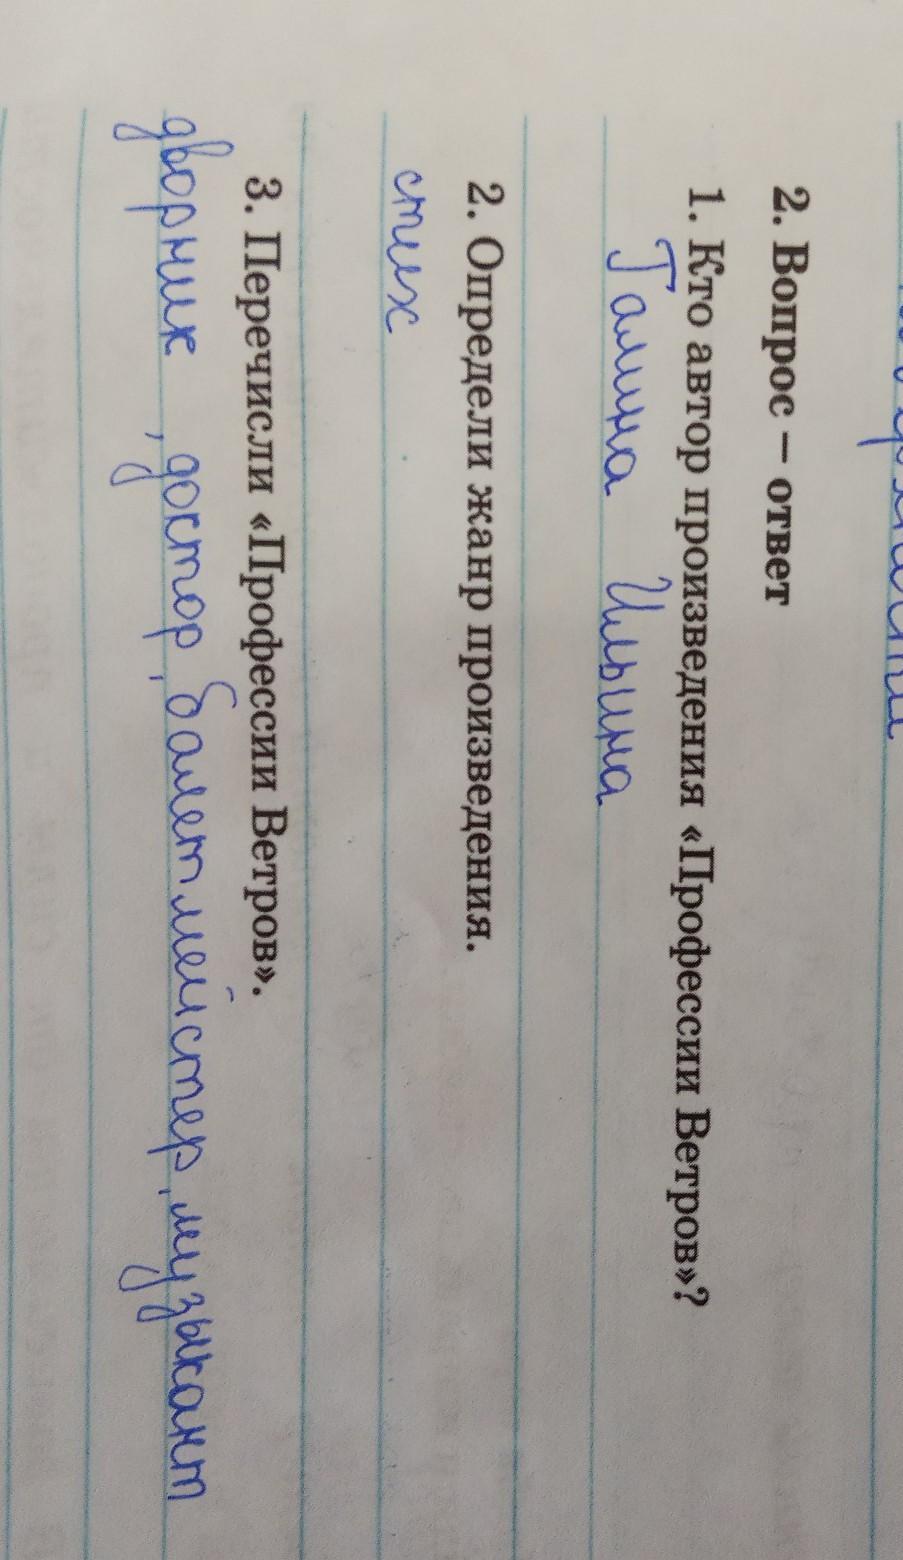 2. Вопрос – ответ
1. Кто автор произведения «Профессии Ветров»?
Галина Ильина
2. Определи жанр произведения.
стих
3. Перечисли «Профессии Ветров».
дворник, достор, балетмейстер, музыкант